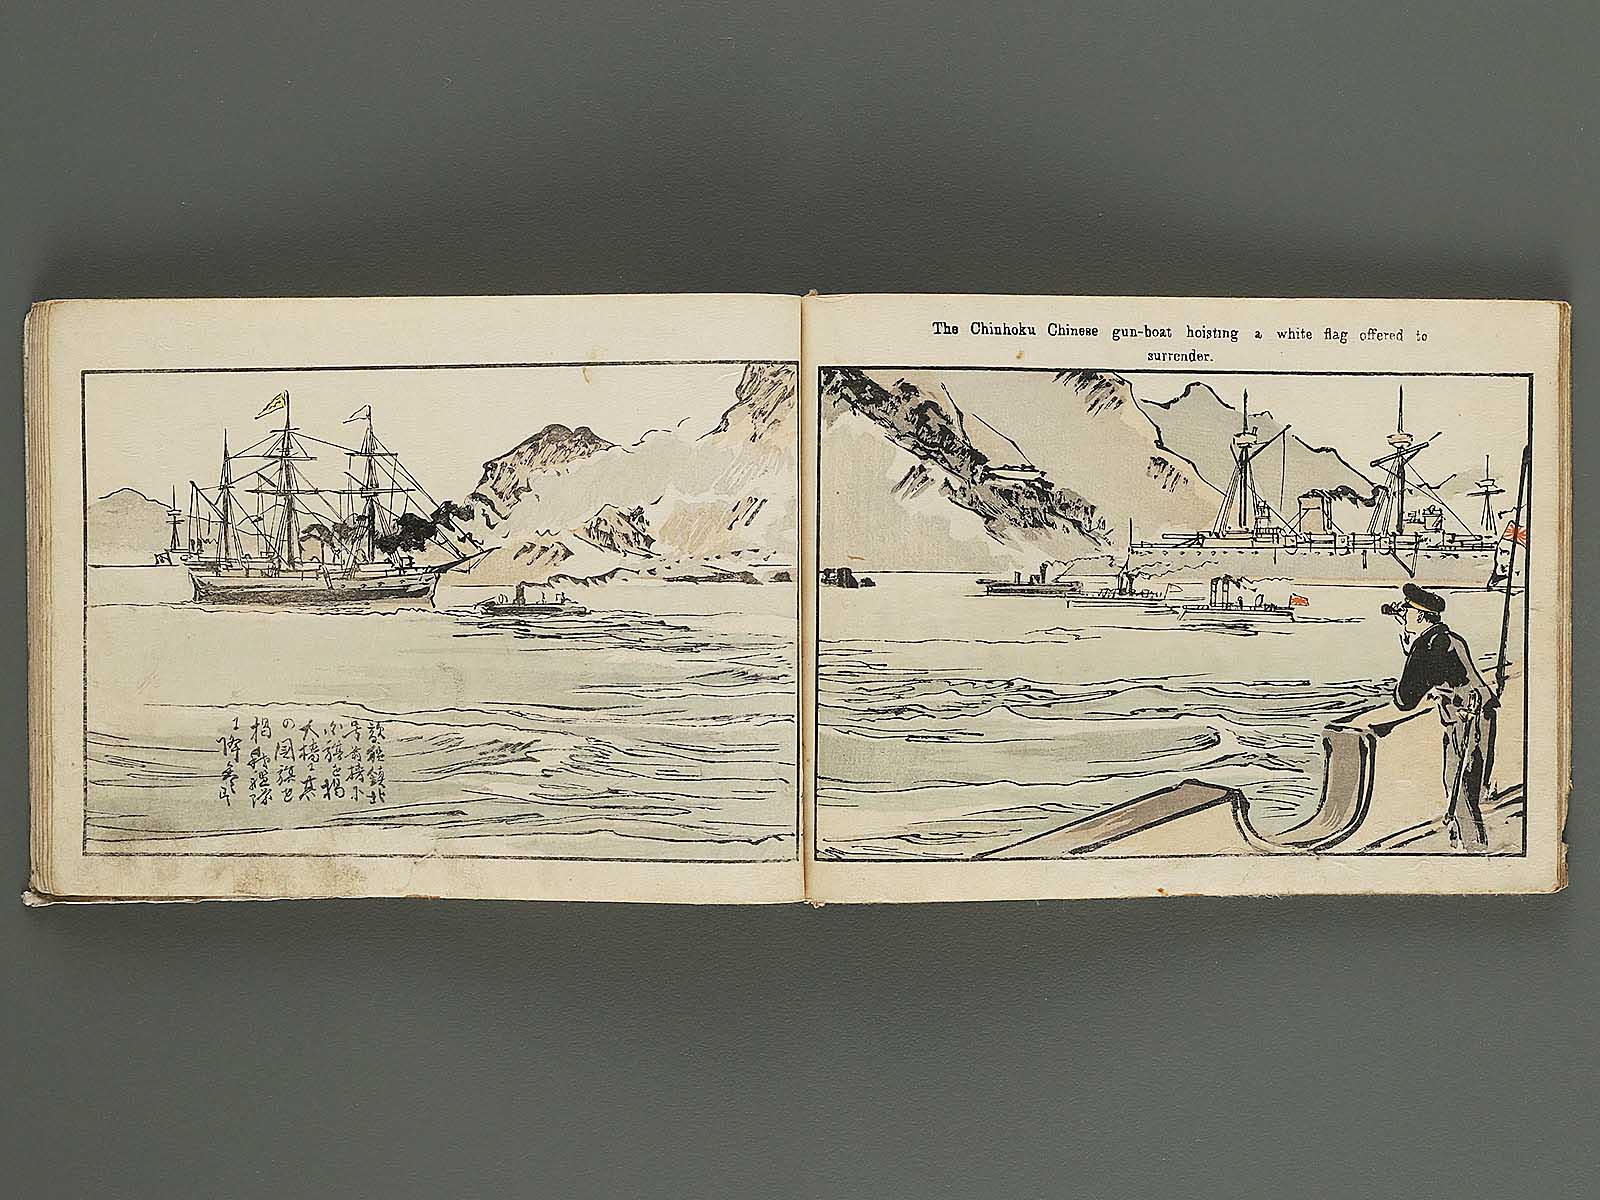 The Chinhoku Chinese gun-boat hoisting a white flag offered to
surrender.
敵艦鎮北
号前檣ニ
白旗を掲
大檣ニ其
の国旗を
掲我艦隊
ニ降参